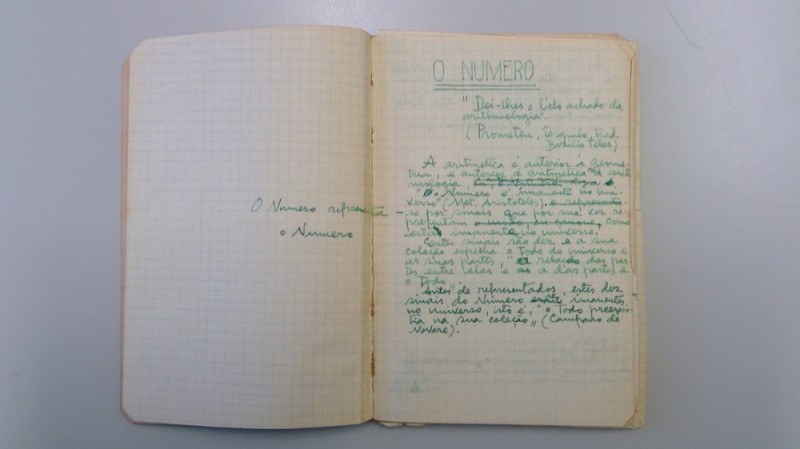 O Numero representa –
o Numero
O NUMERO
" Dei-lhes o belo achado da
aritmologia"
(Prometeu, Ésquilo, trad.
Basilio Teles)
A aritmetica é anterior à geome-
tria, e anterior à aritmetica a arit
mologia,
"O Numero é imanente no uni-
verso" (Met. Aristoteles).
-se por sinais que por sua vez re-
presentam como
imanente no universo.
Estes sinais são dez e a sua
coleção espelha o Todo do universo e
as suas partes, "a relação das par-
tes entre elas e as das partes e
o Todo.
Antes de representados, estes dez
sinais do Número imanentes
no universo, isto é, "o Todo preexis-
tia na sua coleção" (Campano de
Novare).